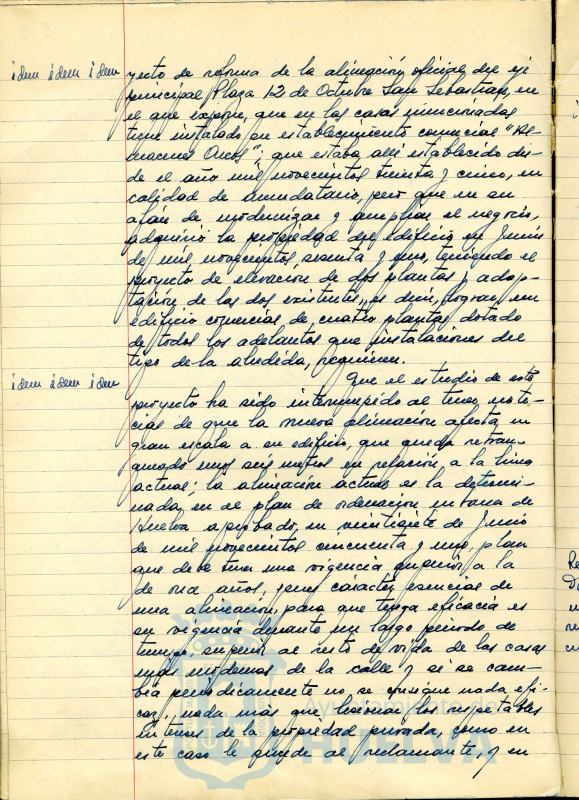 idem idem idem
yecto de reforma de la alineación oficial del eje
principal Plaza 12 de Octubre San Sebastián, en
el que expone, que en las casas mencionadas
tiene instalado un establecimiento comercial "Al-
macenes Arcos"; que estaba allí establecido des-
de el año mil novecientos treinta y cinco, en
calidad de arrendatario, pero que en su
afán de modernizar y ampliar el negocio,
adquirió la propiedad del edificio en Junio
de mil novecientos sesenta y uno, teniendo el
proyecto de elevación de dos plantas y adap-
tación de las dos existentes, es decir, lograr un
edificio comercial de cuatro plantas dotado
de todos los adelantos que instalaciones del
tipo de la aludida, requieren.
idem idem idem
Que el estudio de este
proyecto ha sido interrumpido al tener noti-
cias de que la nueva alineación afecta en
gran escala a su edificio, que queda retran-
queado unos seis metros en relación a la línea
actual; la alineación actual es la determi-
nada en el plan de ordenación urbana de
Huelva aprobado en veintisiete de Junio
de mil novecientos cincuenta y uno, plan
que debe tener una vigencia superior a la
de once años, pues carácter esencial de
una alineación, para que tenga eficacia es
su vigencia durante un largo periodo de
tiempo, superior al resto de vida de las casas
más modernas de la calle y si se cam-
bia periódicamente no se consigue nada efi-
caz, nada más que lesionar los respetables
intereses de la propiedad privada, como en
este caso le sucede al reclamante, y en
Ayuntamiento de
HUELVA